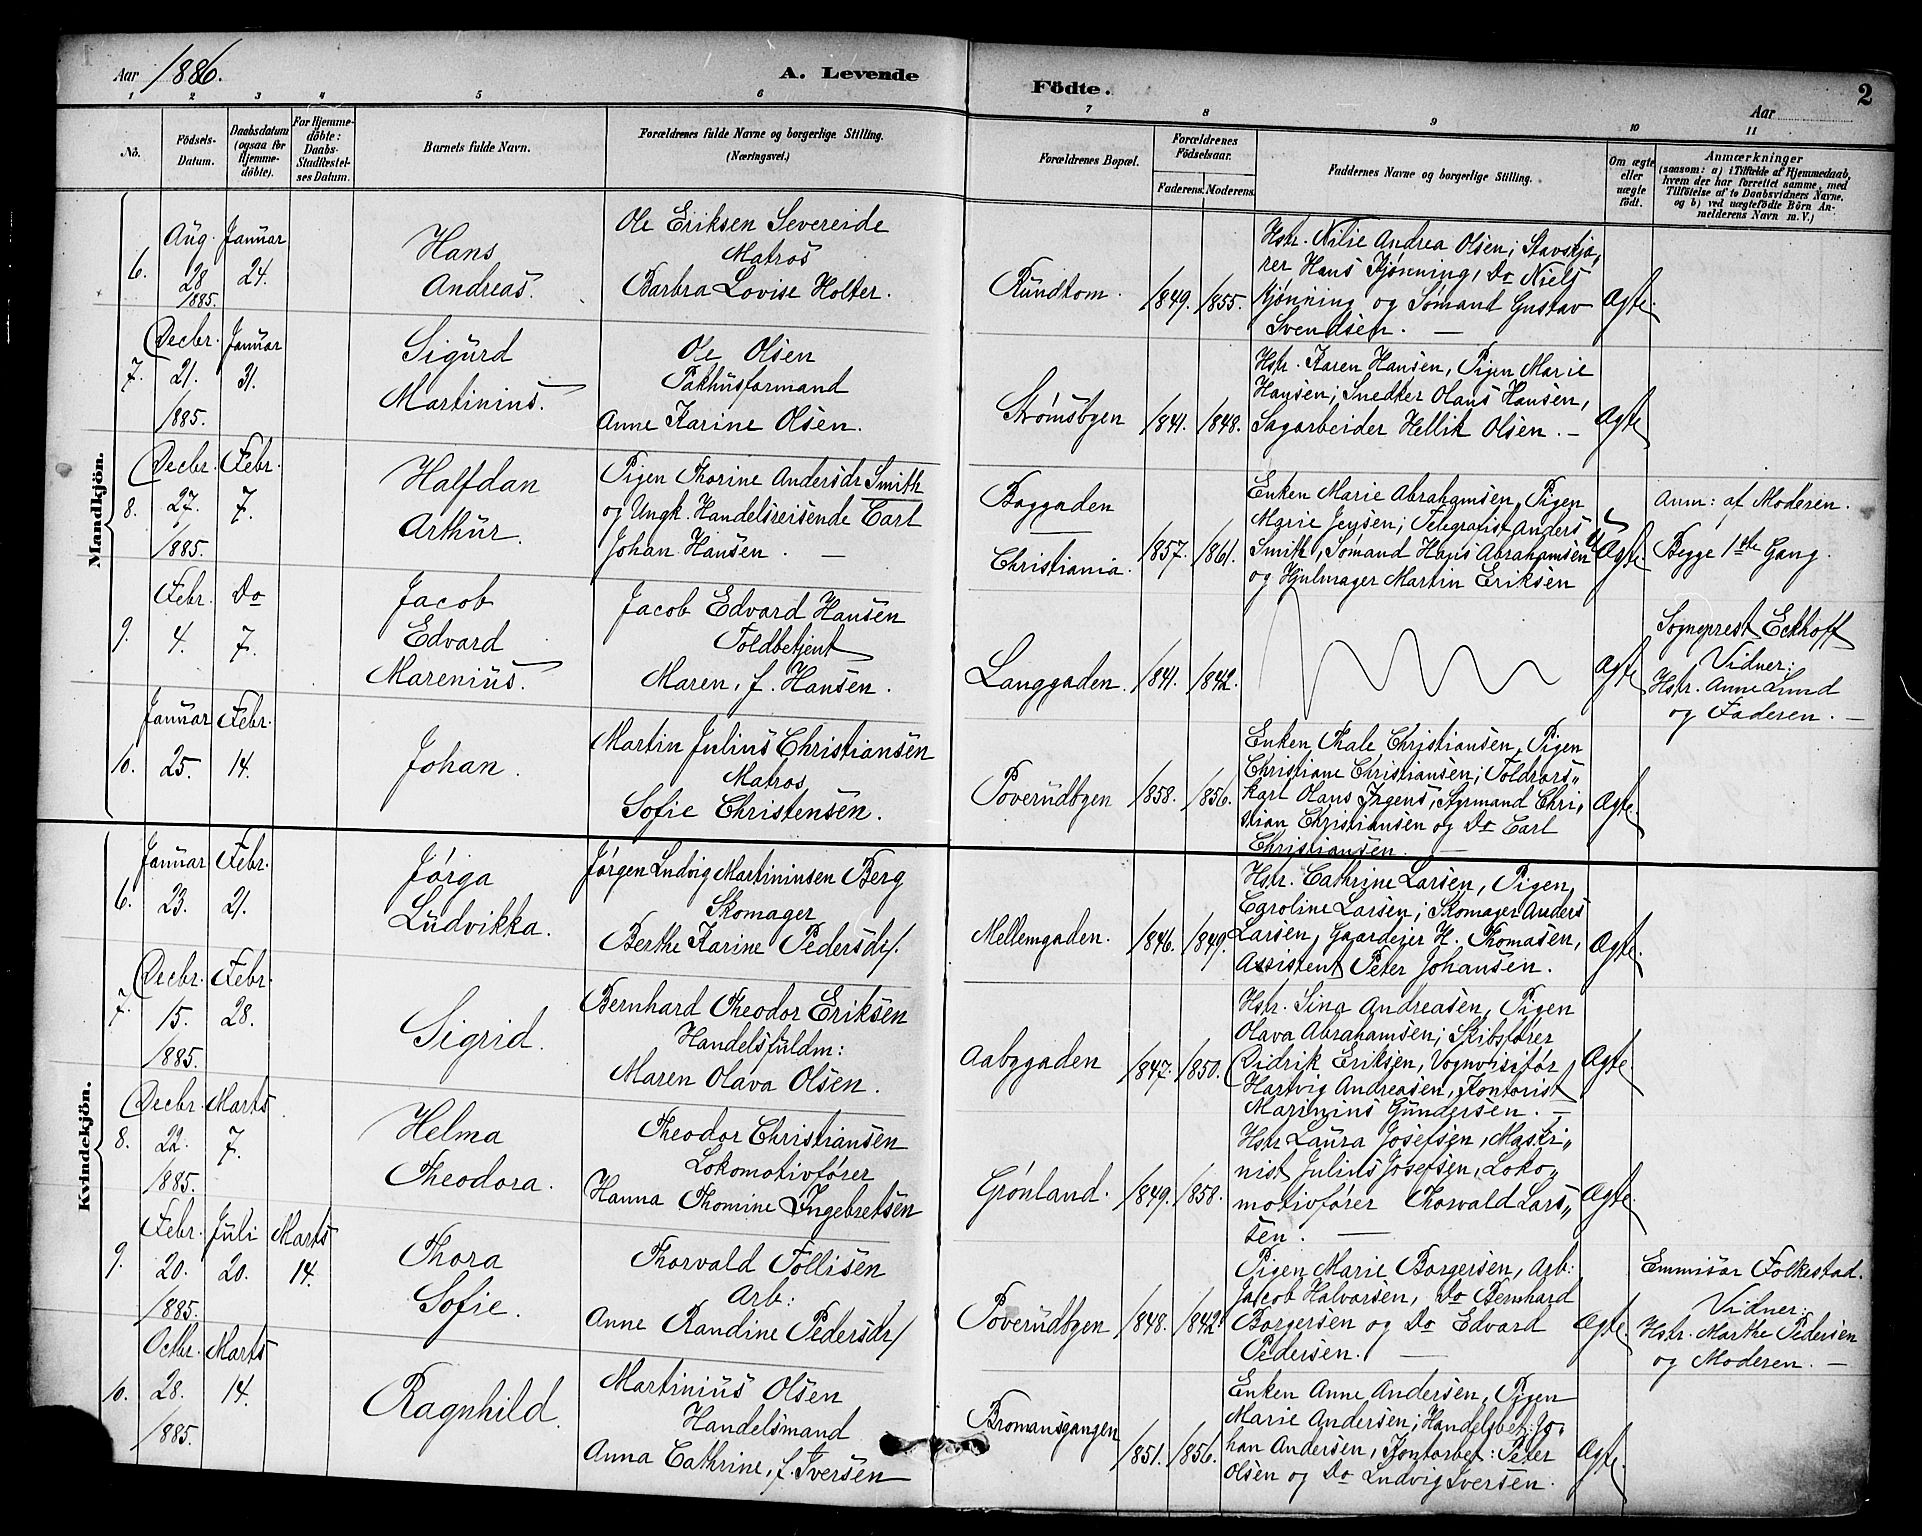 Aar 1886.
A. Levende Fødte.
Aar
2
1 2 3 4 5 6 7 8 9 10 11
No.
Födsels-Datum.
Daabsdatum (ogsaa for Hjemme-döbte).
For Hjemme-döbte: Daabs-Stadfæstel-ses Datum.
Barnets fulde Navn.
Forældrenes fulde Navne og borgerlige Stilling. (Næringsvei.)
Forældrenes Bopæl.
Forældrenes Födselsaar.
Faderens. Moderens.
Faddernes Navne og borgerlige Stilling.
Om ægte eller uægte födt.
Anmærkninger
(saasom: a) i Tilfælde af Hjemmedaab,
hvem der har forrettet samme, med
Tilföielse af to Daabsvidners Navne.
og b) ved uægtefödte Börn An-
melderens Navn m. V.)
Mandkjön.
6.
Aug. 28 1885.
Januar 24.
Hans
Andreas.
Ole Eriksen Severeide
Matros
Barbra Lovise Holter.
Rundtom.
1849. 1855.
Hstr. Nilie Andrea Olsen; Stavskjæ,
rer Hans Kjønning, Do Niels
Kjønning og Sømand Gustav
Svendsen. —
Ægte.
7.
Decbr. 21. 1885.
Januar 31.
Sigurd
Martinius.
Ole Olsen
Pakhusformand
Anne Karine Olsen.
Strømsbyen
1841. 1848.
Hstr. Karen Hansen, Pigen Marie
Hansen; Snedker Olaus Hansen,
Sagarbeider Hellik Olsen. —
Ægte
8.
Decbr. 27. 1885.
Febr. 7.
Halfdan
Arthur.
Pigen Thorine Andersdr Smith
og Ungk. Handelsreisende Carl
Johan Hansen. —
Baggaden
Christiania.
1857. 1861.
Enken Marie Abrahamsen, Pigen
Marie Jensen; Telegrafist Anders
Smith, Sømand Hans Abrahamsen
og Hjulmager Martin Eriksen
uÆgte
Anm: af Moderen.
Begge 1ste Gang.
9.
Febr. 4.
Do 7.
Jacob
Edvard
Marenius.
Jacob Edvard Hansen
Toldbetjent
Maren, f. Hansen.
Langgaden.
1841. 1842.
Ægte
Sogneprest Eckhoff
Vidner:
Hstr. Anne Lund
og Faderen. —
10.
Januar 25.
Febr. 14.
Johan.
Martin Julius Christiansen
Matros
Sofie Christensen.
Poverudbyen
1858. 1856.
Enken Thale Christiansen, Pigen
Christiane Christiansen; Toldrors„
karl Olaus Irgens, Styrmand Chri„
stian Christiansen og Do Carl
Christiansen. —
Ægte.
Kvindekjön.
6.
Januar 23.
Febr. 21.
Jørga
Ludvikka.
Jørgen Ludvig Martininsen Berg
Skomager
Berthe Karine Pedersdr
Mellemgaden.
1846. 1849.
Hstr. Cathrine Larsen, Pigen
Caroline Larsen; Skomager Anders
Larsen, Gaardejer H. Thomasen,
Assistent Peter Johansen.
Ægte.
7.
Decbr. 15. 1885.
Febr. 28.
Sigrid.
Bernhard Theodor Eriksen
Handelsfuldm:
Maren Olava Olsen.
Aabygaden
1847. 1850.
Hstr. Sina Andreasen, Pigen
Olava Abrahamsen; Skibsfører
Didrik Eriksen, Vognvisitør
Hartvig Andreasen, Kontorist
Marinius Gundersen. —
Ægte.
8.
Decbr. 22. 1885.
Marts 7.
Helma
Theodora.
Theodor Christiansen
Lokomotivfører
Hanna Thomine Ingebretsen
Grønland.
1849. 1858.
Hstr Laura Josefsen, Maski„
nist Julius Josefsen, Loko„
motivfører Thorvald Lars„
sen. —
Ægte.
9.
Febr. 20. 1885.
Juli 20.
Marts 14.
Thora
Sofie.
Thorvald Tollisen
Arb:
Anne Randine Pedersdr
Poverudbyen
1848. 1842.
Pigen Marie Borgersen, Arb:
Jacob Halvorsen, Do Bernhard
Borgersen og Do Edvard
Pedersen. —
Ægte.
Emmisær Folkestad.
Vidner:
Hstr. Marthe Pedersen
og Moderen. —
10.
Octbr. 28. 1885.
Marts 14.
Ragnhild.
Martinius Olsen
Handelsmand
Anna Cathrine, f. Iversen
Bromansgangen
1851. 1856.
Enken Anne Andersen, Pigen
Marie Andersen; Handelsbet: Jo„
han Andersen, Kontorbet: Peter
Olsen og Do Ludvig Iversen.
Ægte.